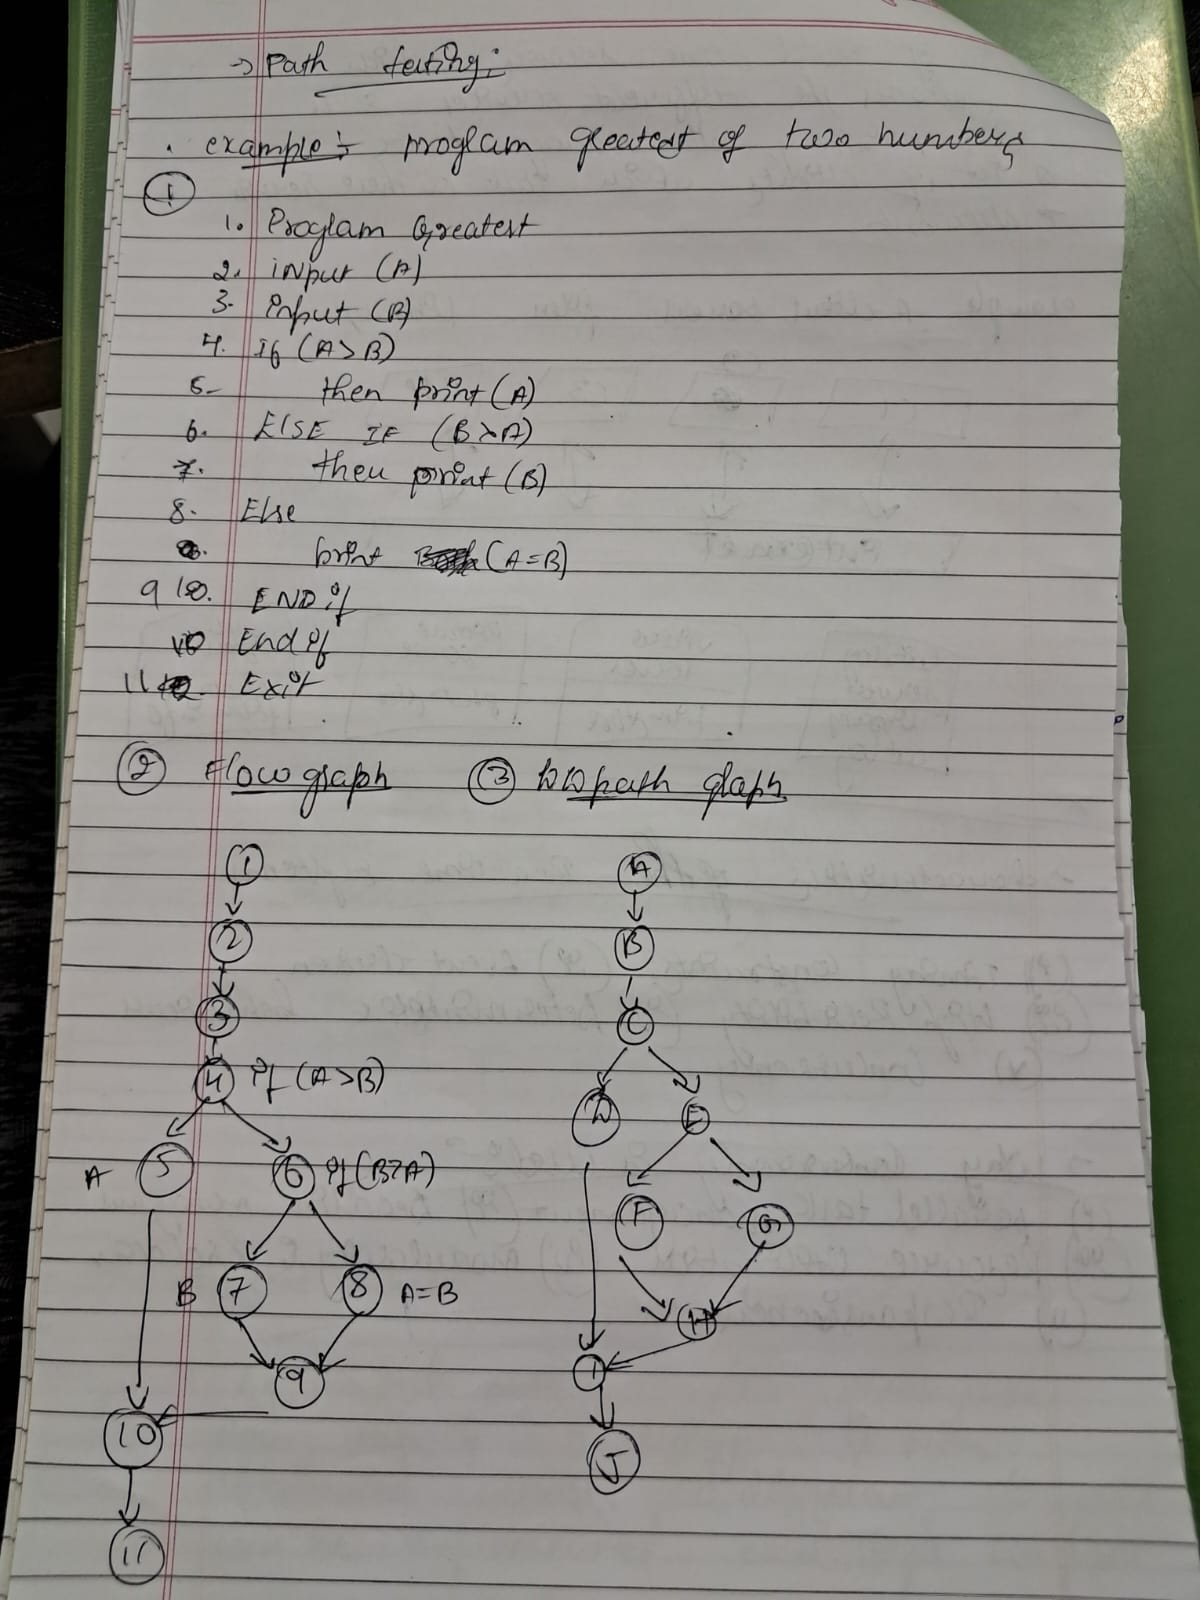 → Path testing:
. example :- program greatest of two numbers
①
1. Program Greatest
2. input (A)
3. Input (B)
4. If (A>B)
5. then print (A)
6. ELSE IF (B>A)
7. then print (B)
8. Else
print (A=B)
9 10. END if
10 End if
11 Exit
② Flow graph ③ DD path graph
1 A
2 B
3 C
4 if (A>B)
D E
A 5 6 if (B>A)
F G
B 7 8 A=B
H
9 I
10 J
11